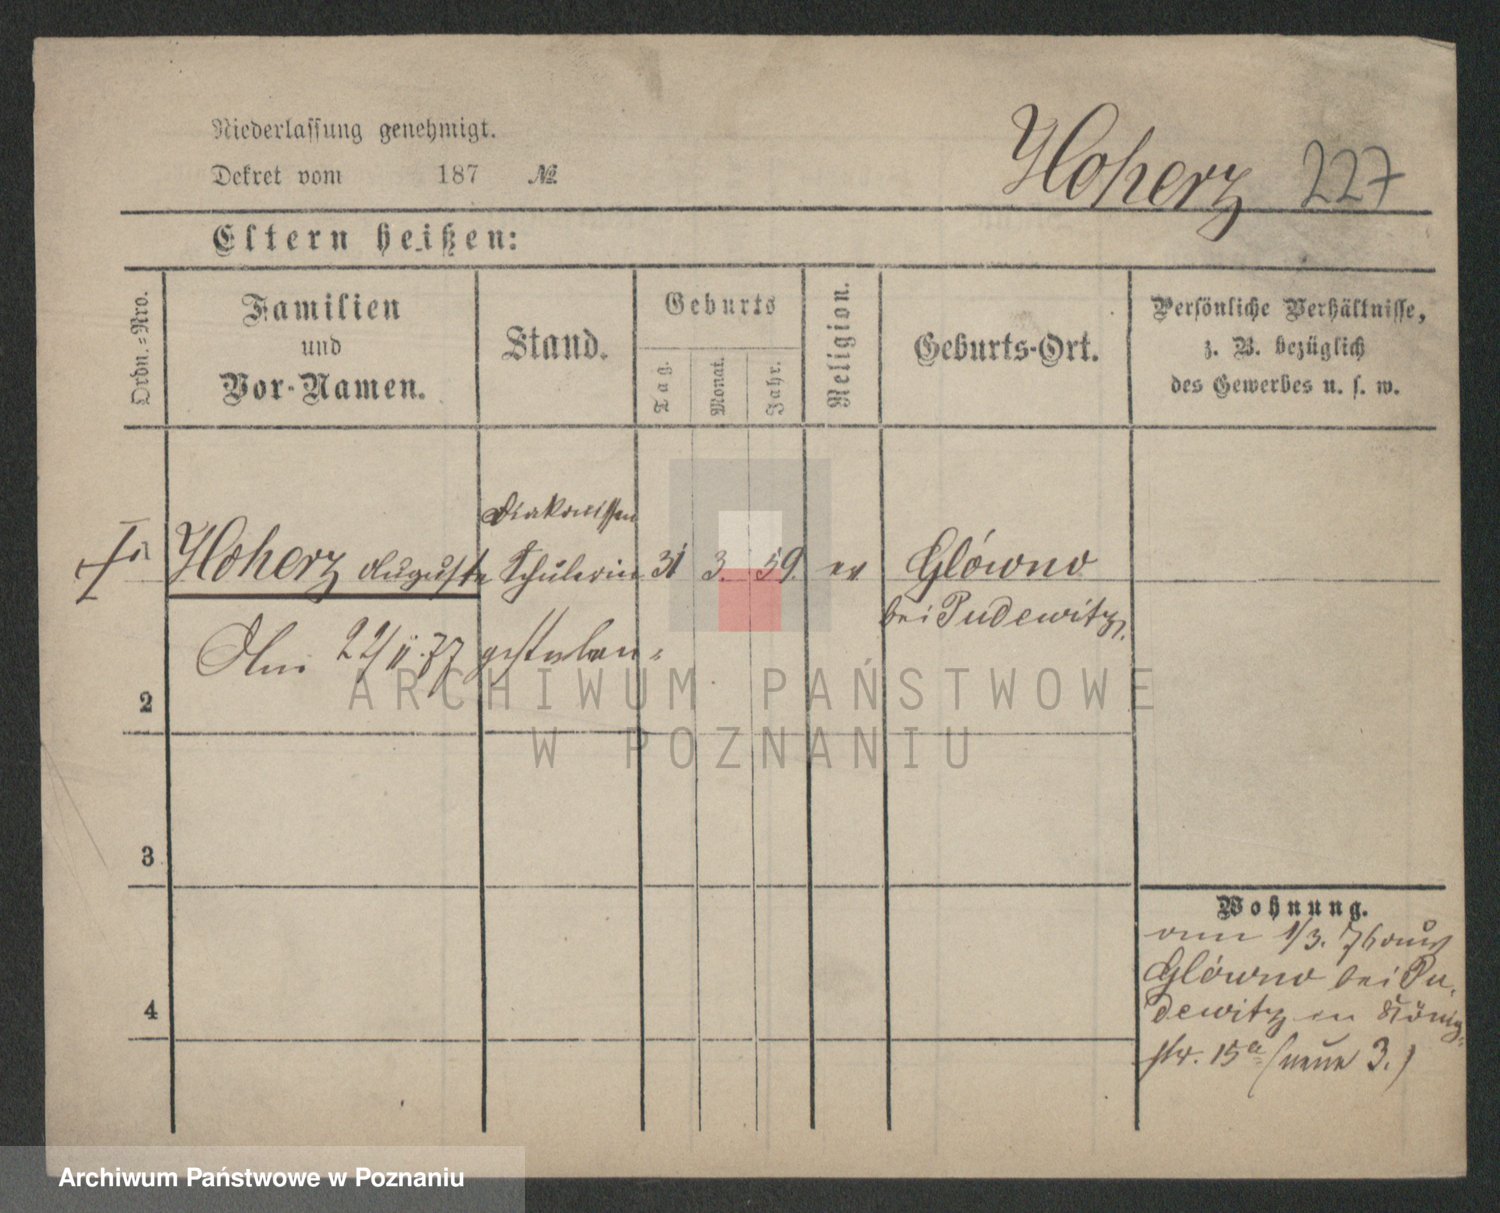 Niederlassung genehmigt.
Dekret vom 187 №
Hoherz 227
Eltern heißen:
Ordn.-Nro.
Familien
und
Vor-Namen.
Stand.
Geburts
Tag.
Monat.
Jahr.
Religion.
Geburts-Ort.
Persönliche Verhältnisse,
z. B. bezüglich
des Gewerbes u. s. w.
Diakonissen
Hoherz Auguste Schülerin 31 3. 59. ev Glówno
bei Pudewitz.
Am 22/11.77 gestorben
2
3
4
Wohnung.
1/3. 76 aus
Glówno bei Pu-
dewitz in König-
str. 15a (neue 3.)
ARCHIWUM PAŃSTWOWE
W POZNANIU
Archiwum Państwowe w Poznaniu